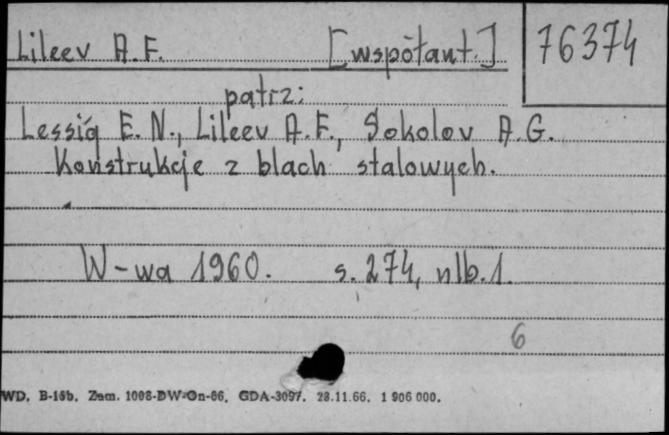 Lileev A.F. [współaut.] 76374
patrz:
Lessig E. N., Lileev A. F., Sokolov A. G.
Konstrukcje z blach stalowych.
W-wa 1960. s. 274, nlb. 1.
6
WD. B-15b. Zam. 1098-DW-Gn-66. GDA-3097. 28.11.66. 1 906 000.